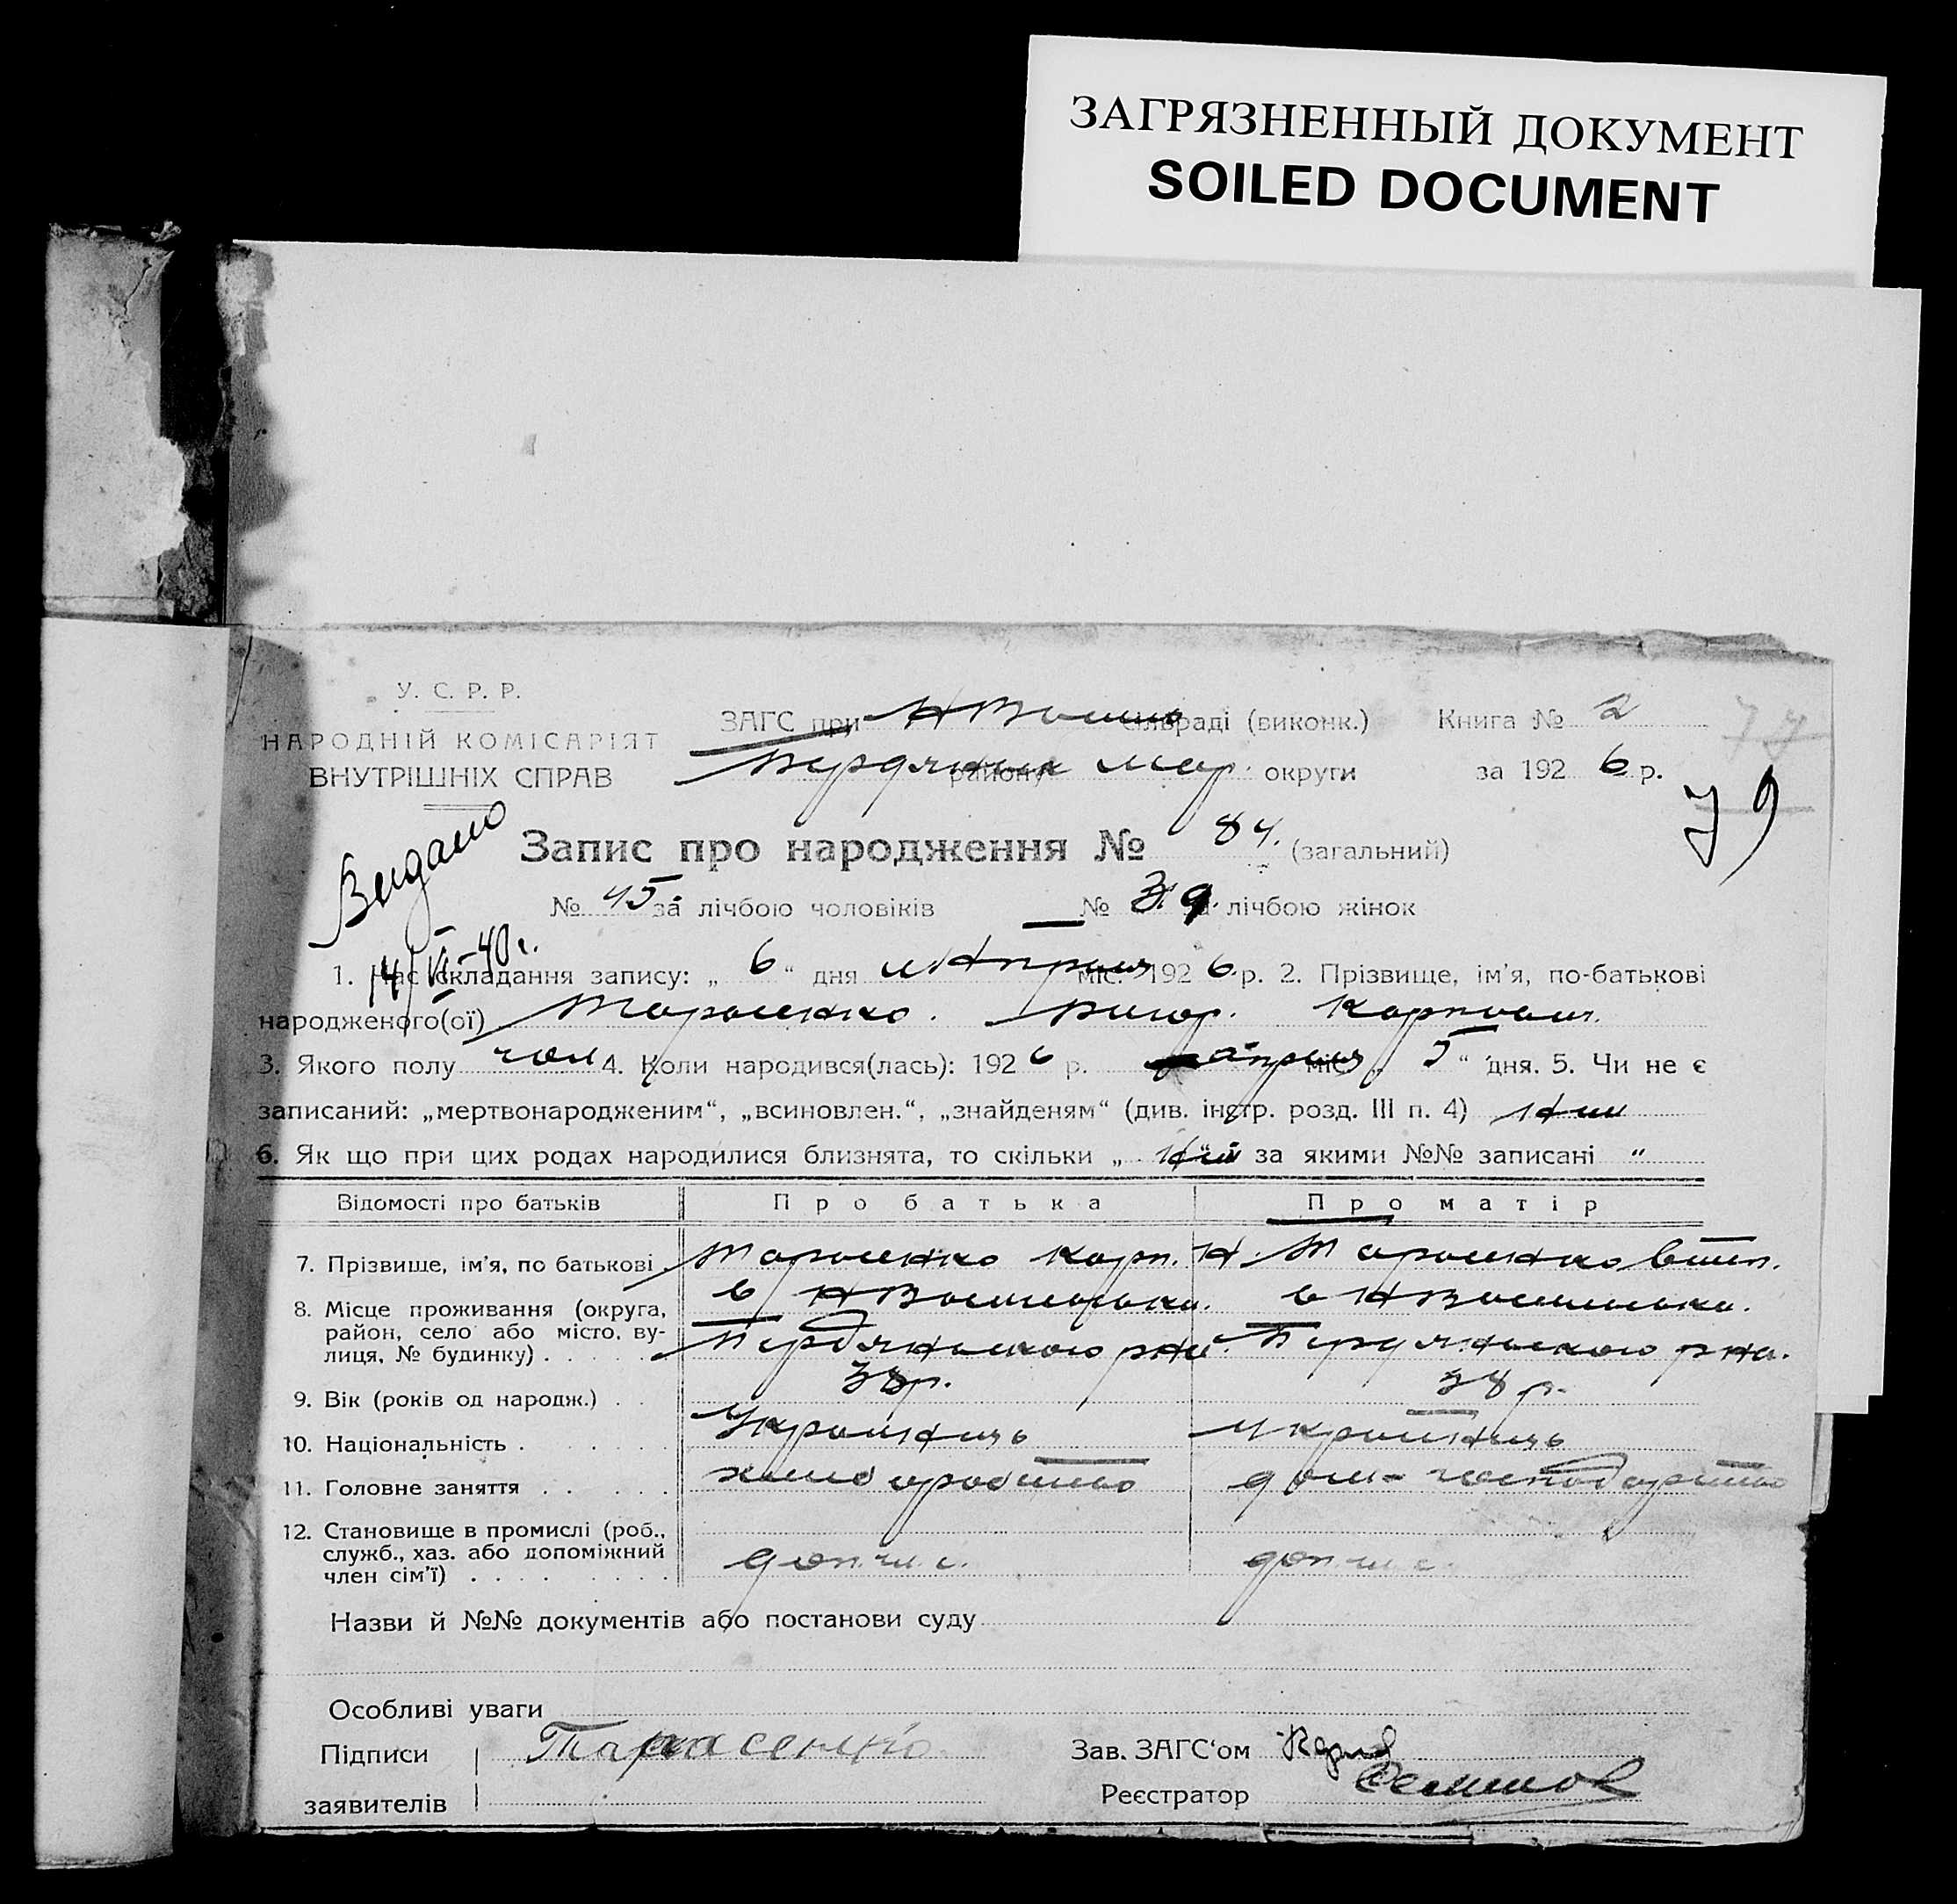 ЗАГРЯЗНЕННЫЙ ДОКУМЕНТ
SOILED DOCUMENT
У. С. Р. Р.
НАРОДНІЙ КОМІСАРІЯТ
ВНУТРІШНІХ СПРАВ
ЗАГС при сільраді (виконк.) Книга № 2
району округи за 1926 р.
77
79
Запис про народження № 84. (загальний)
№ 45 за лічбою чоловіків № 39 за лічбою жінок
Видано
14/VI-40 г.
1. Час складання запису: „ 6 “ дня Апреля міс. 1926 р. 2. Прізвище, ім’я, по-батькові
народженого(ої) Карпович.
3. Якого полу чол 4. Коли народився(лась): 1926 р. апреля міс. „ 5 “ дня. 5. Чи не є
записаний: „мертвонародженим“, „всиновлен.“, „знайденям“ (див. інстр. розд. III п. 4) ні
6. Як що при цих родах народилися близнята, то скільки „ ні “ за якими №№ записані "
Відомості про батьків Про батька Про матір
7. Прізвище, ім’я, по батькові Карп. Н.
8. Місце проживання (округа,
район, село або місто, ву-
лиця, № будинку) Бердянського рна. Бердянського рна.
9. Вік (років од народж.) 38р. 38 р.
10. Національність Українець Українець
11. Головне заняття хліборобство дом-господарство
12. Становище в промислі (роб.,
служб., хаз. або допоміжний
член сім’ї) доп. ч. с. доп ч. с.
Назви й №№ документів або постанови суду
Особливі уваги
Підписи Тарасенко Зав. ЗАГС‘ом
заявителів Реєстратор